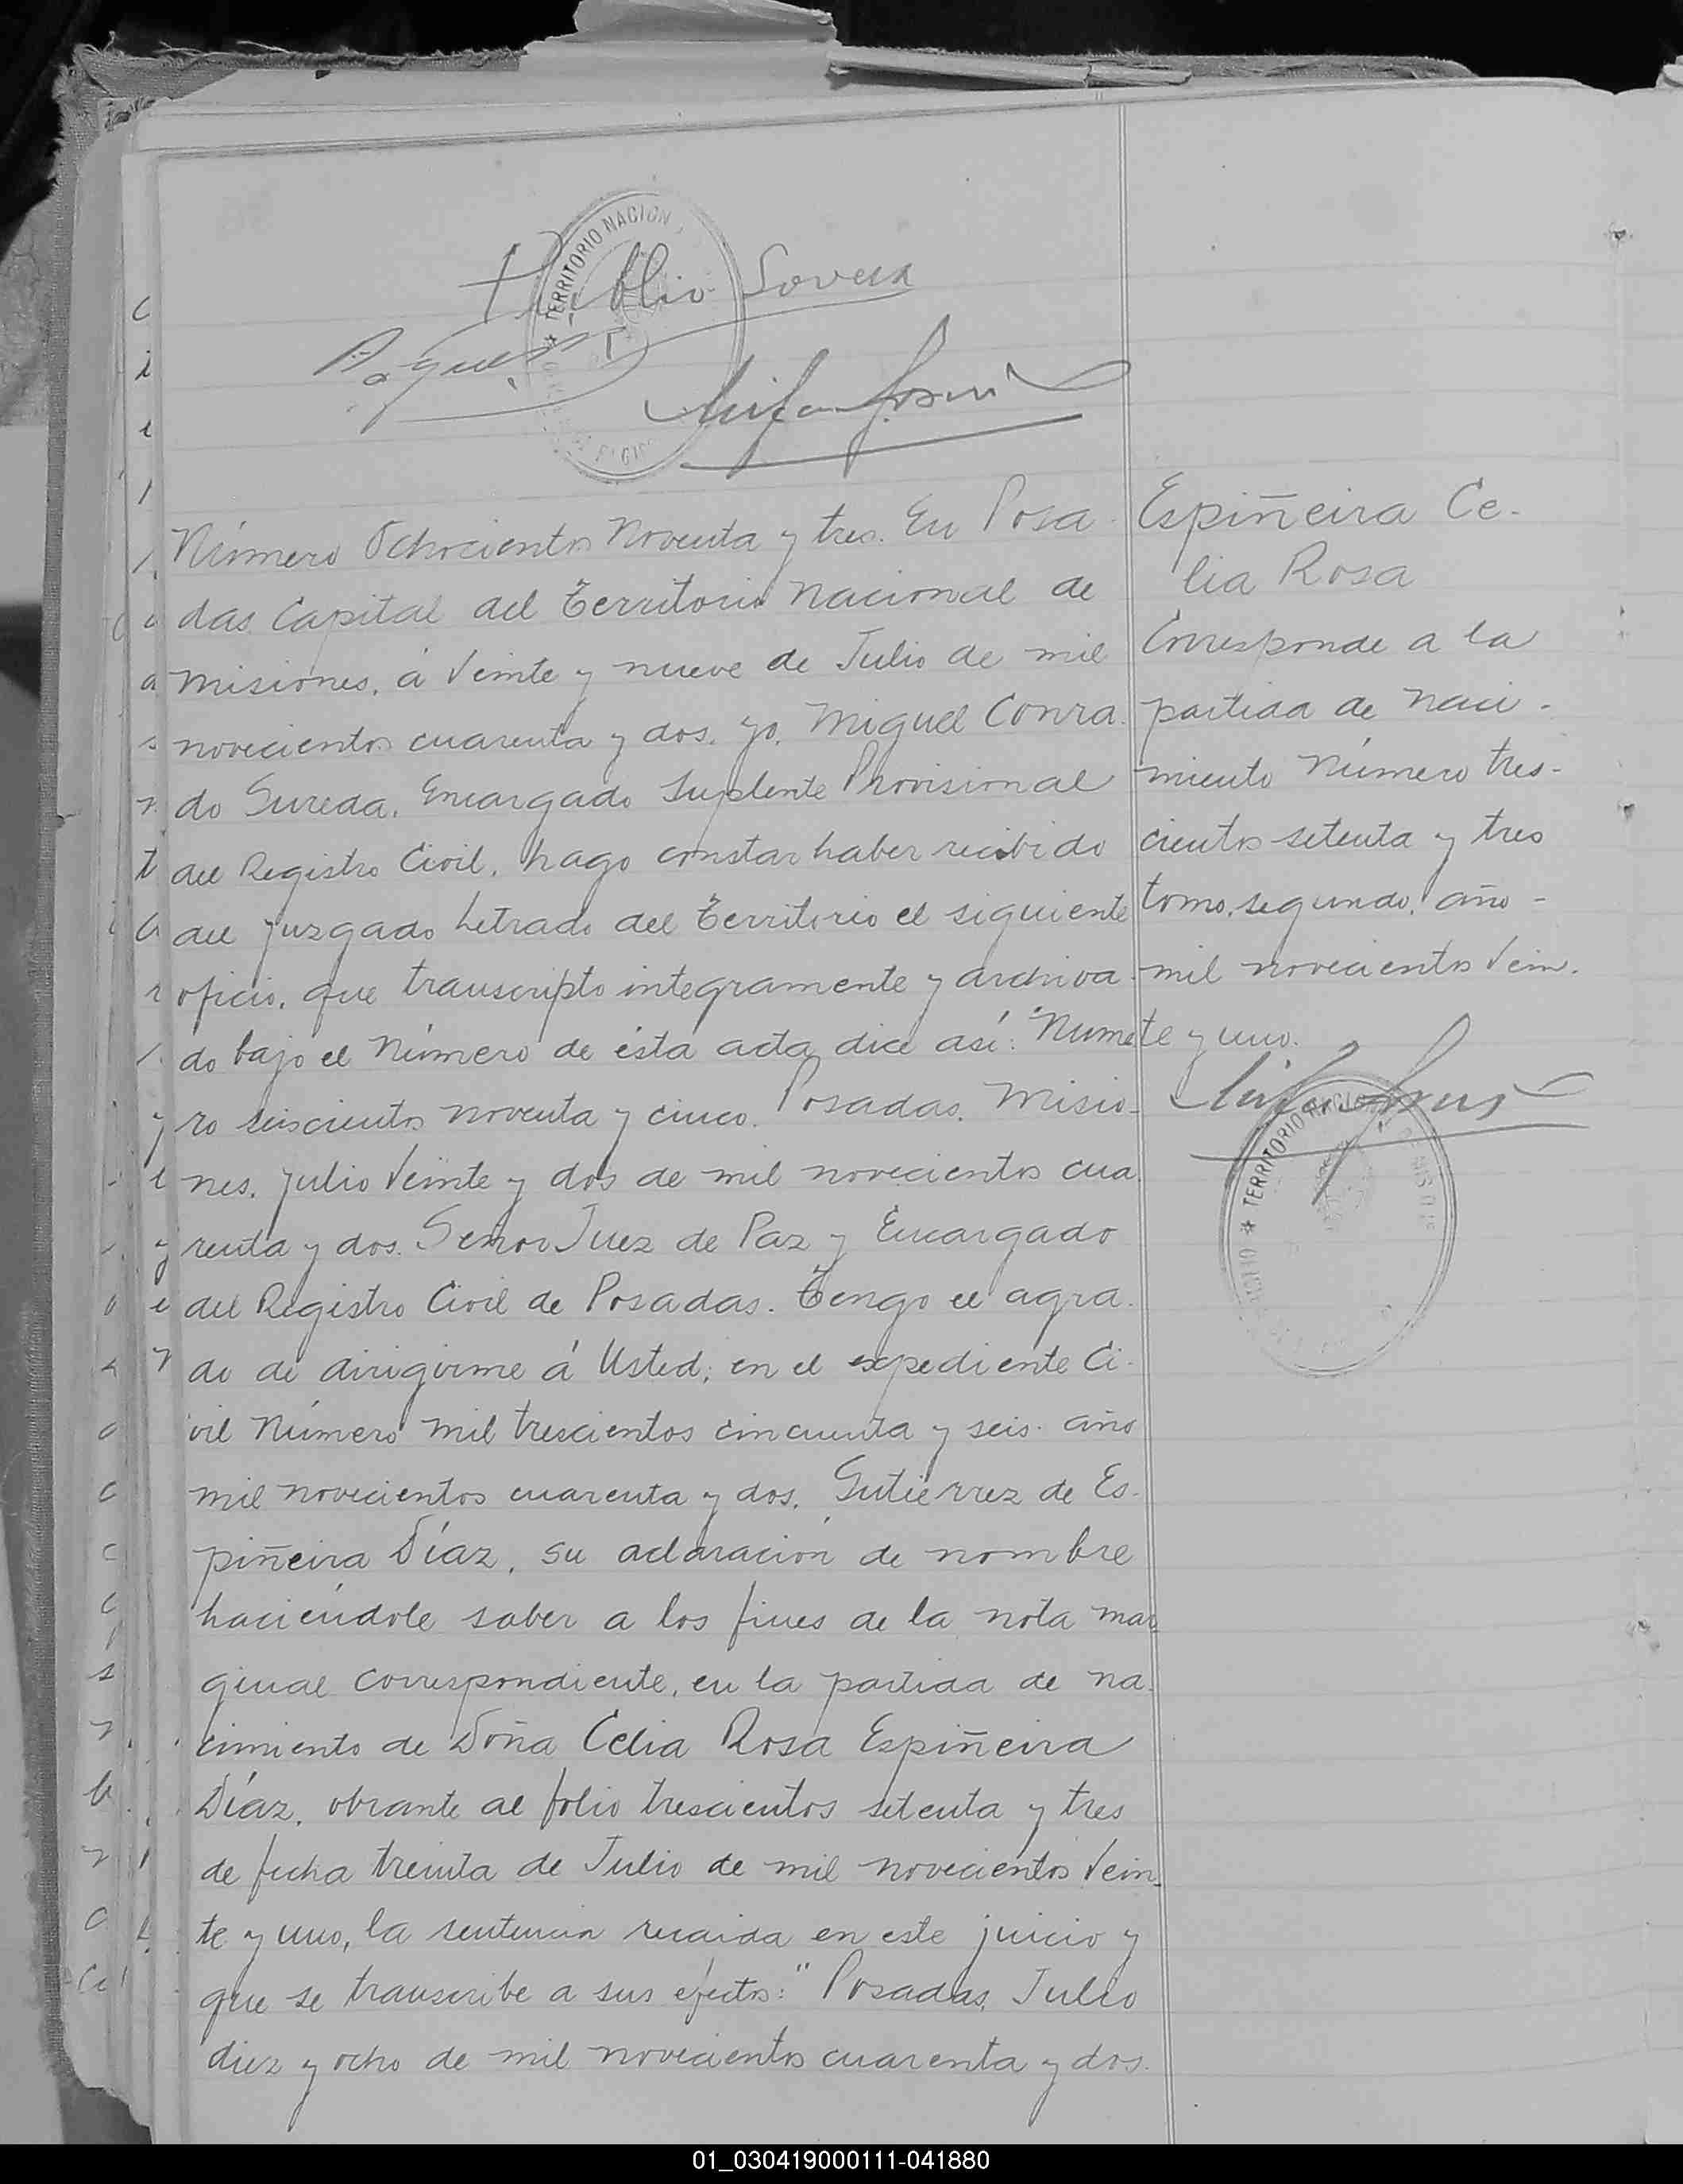 TERRITORIO NACION
Número Ochocientos Noventa y tres. En Posa
das Capital del Territorio Nacional de
Misiones, á Veinte y nueve de Julio de mil
novecientos cuarenta y dos, yo, Miguel Conra
do Sureda, Encargado Suplente Provisional
del Registro Civil, hago constar haber recibido
del Juzgado Letrado del Territorio el siguiente
oficio, que transcripto integramente y archiva
do bajo el Número de ésta acta dice asi: "Nume
ro seiscientos noventa y cinco. Posadas, Misio-
nes, Julio Veinte y dos de mil novecientos cua
renta y dos. Señor Juez de Paz y Encargado
del Registro Civil de Posadas. Tengo el agra
do de dirigirme á Usted, en el expediente Ci-
vil Número mil trescientos cincuenta y seis. año
mil novecientos cuarenta y dos, Gutierrez de Es-
piñeira Díaz, su aclaración de nombre
haciéndole saber a los fines de la nota mar
ginal correspondiente, en la partida de na
cimiento de Doña Celia Rosa Espiñeira
Díaz, obrante al folio trescientos setenta y tres
de fecha treinta de Julio de mil novecientos Vein
te y uno, la sentencia recaida en este juicio y
que se transcribe a sus efectos: "Posadas, Julio
diez y ocho de mil novecientos cuarenta y dos.
Espiñeira Ce-
lia Rosa
Corresponde a la
partida de naci-
miento Número tres-
cientos setenta y tres
tomo, segundo, año -
mil novecientos Vein-
te y uno.
TERRITORIO NACION
01_030419000111-041880